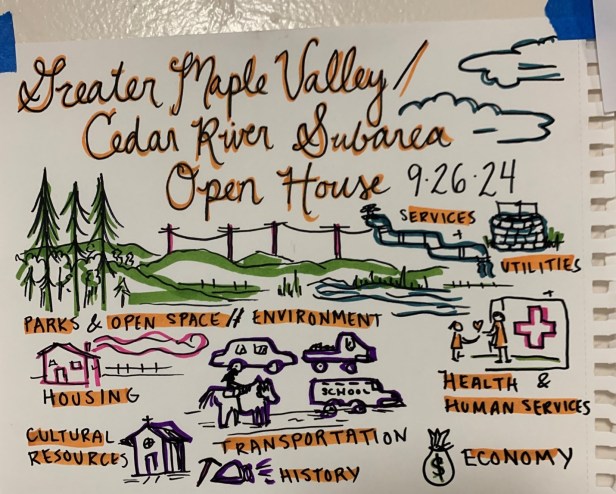 Greater Maple Valley/
Cedar River Subarea
Open House 9.26.24
SERVICES
+
UTILITIES
PARKS & OPEN SPACE // ENVIRONMENT
HOUSING
SCHOOL
HEALTH &
HUMAN SERVICES
CULTURAL
RESOURCES
TRANSPORTATION
HISTORY
$
ECONOMY